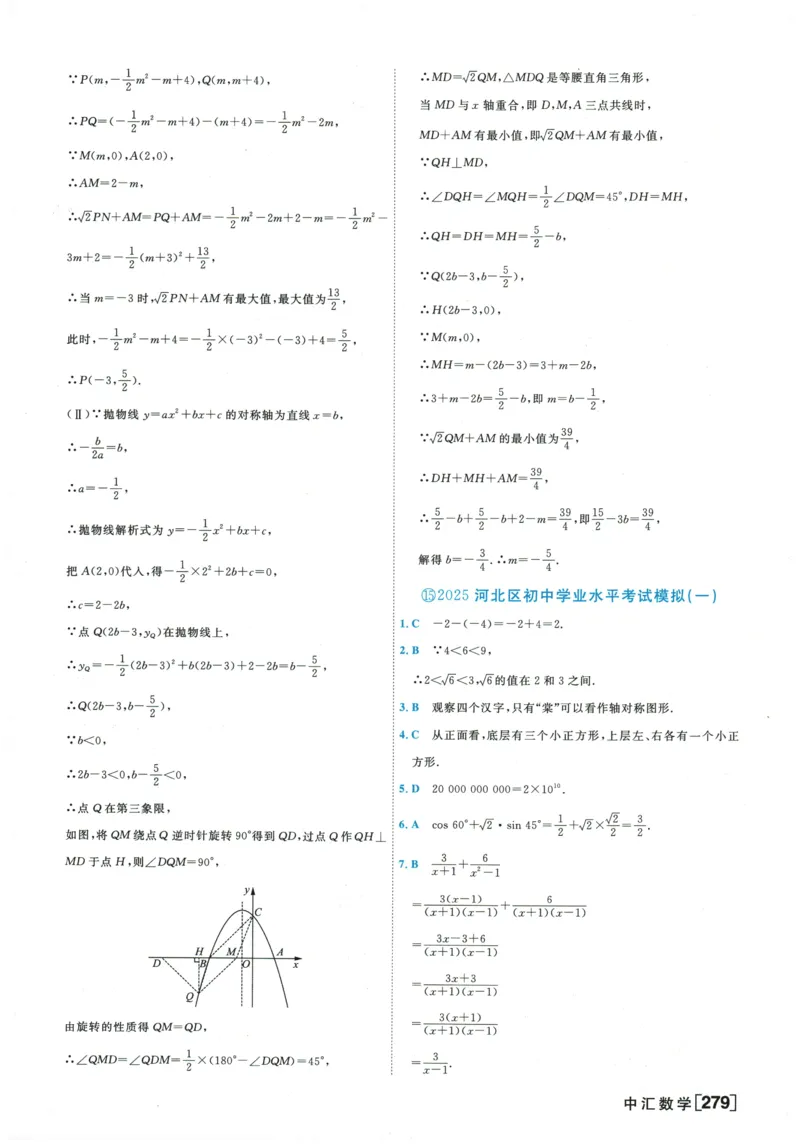 ∵P(m,-1/2m²-m+4),Q(m,m+4),
∴PQ=(-1/2m²-m+4)-(m+4)=-1/2m²-2m,
∵M(m,0),A(2,0),
∴AM=2-m,
∴√2PN+AM=PQ+AM=-1/2m²-2m+2-m=-1/2m²-
3m+2=-1/2(m+3)²+13/2,
∴当m=-3时,√2PN+AM有最大值,最大值为13/2,
此时,-1/2m²-m+4=-1/2×(-3)²-(-3)+4=5/2,
∴P(-3,5/2).
(Ⅱ)∵抛物线y=ax²+bx+c的对称轴为直线x=b,
∴-b/2a=b,
∴a=-1/2,
∴抛物线解析式为y=-1/2x²+bx+c,
把A(2,0)代入,得-1/2×2²+2b+c=0,
∴c=2-2b,
∵点Q(2b-3,y_Q)在抛物线上,
∴y_Q=-1/2(2b-3)²+b(2b-3)+2-2b=b-5/2,
∴Q(2b-3,b-5/2),
∵b<0,
∴2b-3<0,b-5/2<0,
∴点Q在第三象限,
如图,将QM绕点Q逆时针旋转90°得到QD,过点Q作QH⊥
MD于点H,则∠DQM=90°,
y
C
H M A
D B O x
Q
由旋转的性质得QM=QD,
∴∠QMD=∠QDM=1/2×(180°-∠DQM)=45°,
∴MD=√2QM,△MDQ是等腰直角三角形,
当MD与x轴重合,即D,M,A三点共线时,
MD+AM有最小值,即√2QM+AM有最小值,
∵QH⊥MD,
∴∠DQH=∠MQH=1/2∠DQM=45°,DH=MH,
∴QH=DH=MH=5/2-b,
∵Q(2b-3,b-5/2),
∴H(2b-3,0),
∵M(m,0),
∴MH=m-(2b-3)=3+m-2b,
∴3+m-2b=5/2-b,即m=b-1/2,
∵√2QM+AM的最小值为39/4,
∴DH+MH+AM=39/4,
∴5/2-b+5/2-b+2-m=39/4,即15/2-3b=39/4,
解得b=-3/4.∴m=-5/4.
⑮2025河北区初中学业水平考试模拟(一)
1.C -2-(-4)=-2+4=2.
2.B ∵4<6<9,
∴2<√6<3,√6的值在2和3之间.
3.B 观察四个汉字,只有“棠”可以看作轴对称图形.
4.C 从正面看,底层有三个小正方形,上层左、右各有一个小正
方形.
5.D 20 000 000 000=2×10¹⁰.
6.A cos 60°+√2·sin 45°=1/2+√2×√2/2=3/2.
7.B 3/(x+1)+6/(x²-1)
=3(x-1)/(x+1)(x-1)+6/(x+1)(x-1)
=3x-3+6/(x+1)(x-1)
=3x+3/(x+1)(x-1)
=3(x+1)/(x+1)(x-1)
=3/(x-1).
中汇数学[279]